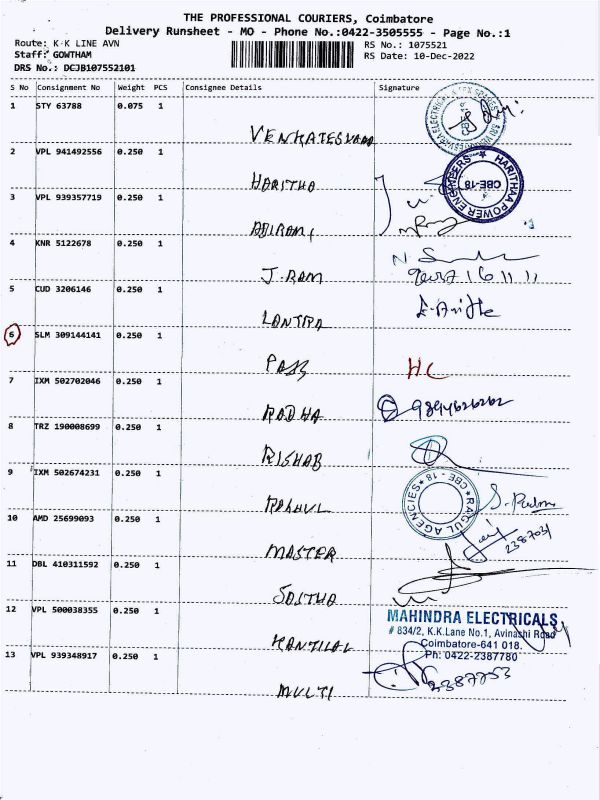 THE PROFESSIONAL COURIERS, Coimbatore
Delivery Runsheet - MO - Phone No.:0422-3505555 - Page No.:1
Route: K-K LINE AVN
RS No.: 1075521
Staff: GOWTHAM
RS Date: 10-Dec-2022
DRS No.: DCJB107552101
S No Consignment No Weight PCS Consignee Details Signature
1 STY 63788 0.075 1
VENKATESWARA
2 VPL 941492556 0.250 1
HARITHA
HARITHAA POWER ENGINEERS CBE-18
3 VPL 939357719 0.250 1
ADIRAMI
4 KNR 5122678 0.250 1
J-RAM
5 CUD 3206146 0.250 1
LANTRA
6 SLM 309144141 0.250 1
PASS HC
7 IXM 502702046 0.250 1
RADHA 9894626262
8 TRZ 190008699 0.250 1
RISHAB
9 IXM 502674231 0.250 1
RAGUL AGENCIES CBE - 18
RAHUL
10 AMD 25699093 0.250 1
MASTER
11 DBL 410311592 0.250 1
SASTHA
12 VPL 500038355 0.250 1
MAHINDRA ELECTRICALS
# 834/2, K.K.Lane No.1, Avinashi Road
Coimbatore-641 018.
KANTILAL
Ph: 0422-2387780
13 VPL 939348917 0.250 1
2387753
MULTI